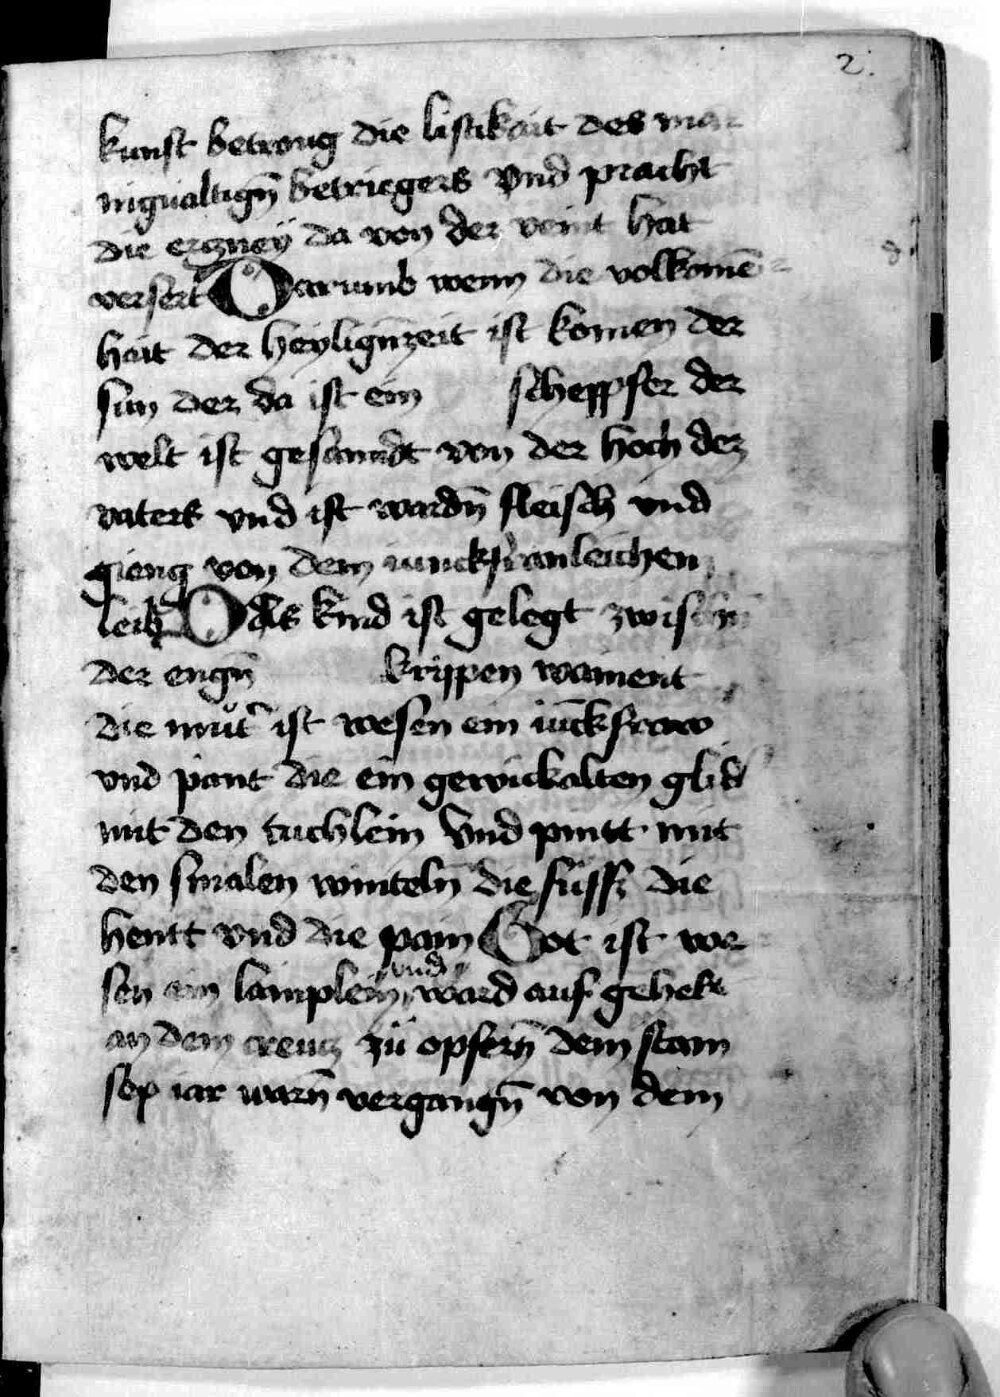 2.
kunst betroug die listikait des man
nigualtign̄ betriegers vnd pracht
die erczney da von der veint hat
versert Darumb wenn die volkomē
hait der heylign̄zeit ist komen der
sun der da ist ein scheppfer der
welt ist gesanndt von der hoch dez
vaters vnd ist wardn̄ fleisch vnd
gieng von dem iunckfranleichen
leib Das kind ist gelegt zwischn̄
der engn̄ krippen wainent
die můt᷑ ist wesen ein iūckfraw
vnd pant die ein gewickalten glid
mit den tuchlein vnd pintt mit
den smalen winteln̄ die füssz die
hentt vnd die pain Got ist we
sen ein lamplein vnd ward auf gehekt
an dem creucz zü opfern̄ dem stam
sep iar warn̄ vergangn̄ von dem